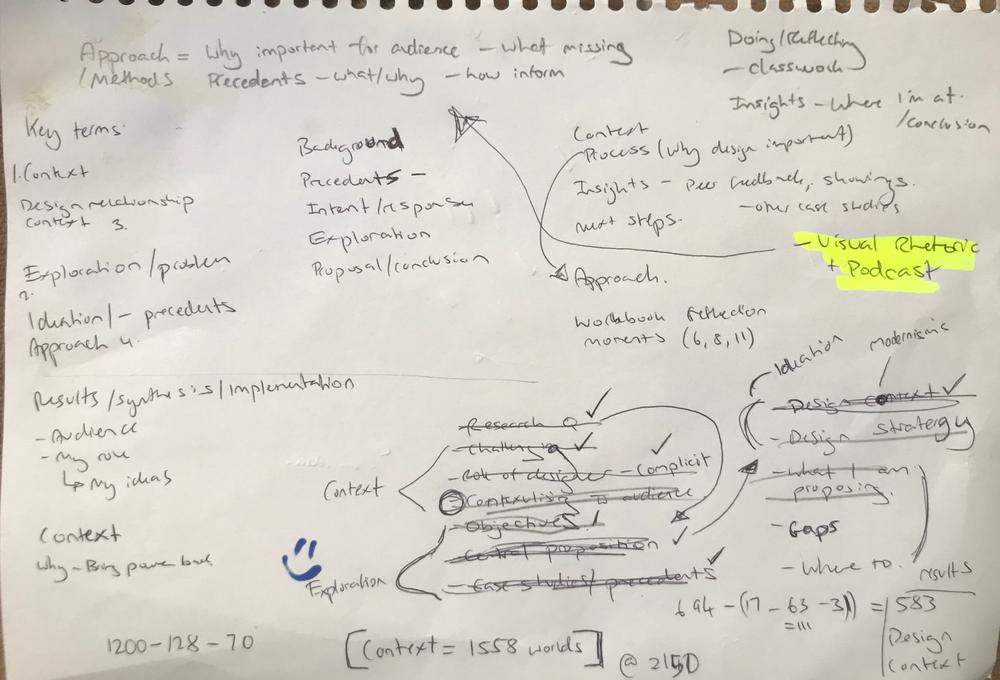 Approach = Why important for audience - what missing
/Methods Precedents - what/why - how inform
Doing/Reflecting
- classwork
Insights - Where I'm at.
/conclusion
Key terms:
1. Context
Design relationship
context 3.
Exploration/problem
2.
Ideation/ - precedents
Approach 4.
Background
Precedents -
Intent/response
Exploration
Proposal/conclusion
Context
Process (why design important)
Insights - peer feedback, showings.
- other case studies
next steps.
- Visual Rhetoric
+ Podcast
Approach.
Workbook reflection
moments (6, 8, 11)
Results/synthesis/implementation
- Audience
- My role
↳ My ideas
Context
Why - Bring power back
Context
- Research Q ✓
- Challenging ✓
- Role of designer - Complicit ✓
- Contextulising to audience
- Objectives
- Central proposition ✓
- Case studies/precedents ✓
Exploration
Ideation
modernismic
- Design Context ✓
- Design Stratergy
- what I am
proposing.
- Gaps
- Where to.
results
694 - (17 - 63 - 31) = 583
= 111
Design
Context
1200-128-70
[Context = 1558 worlds]
@ 2150